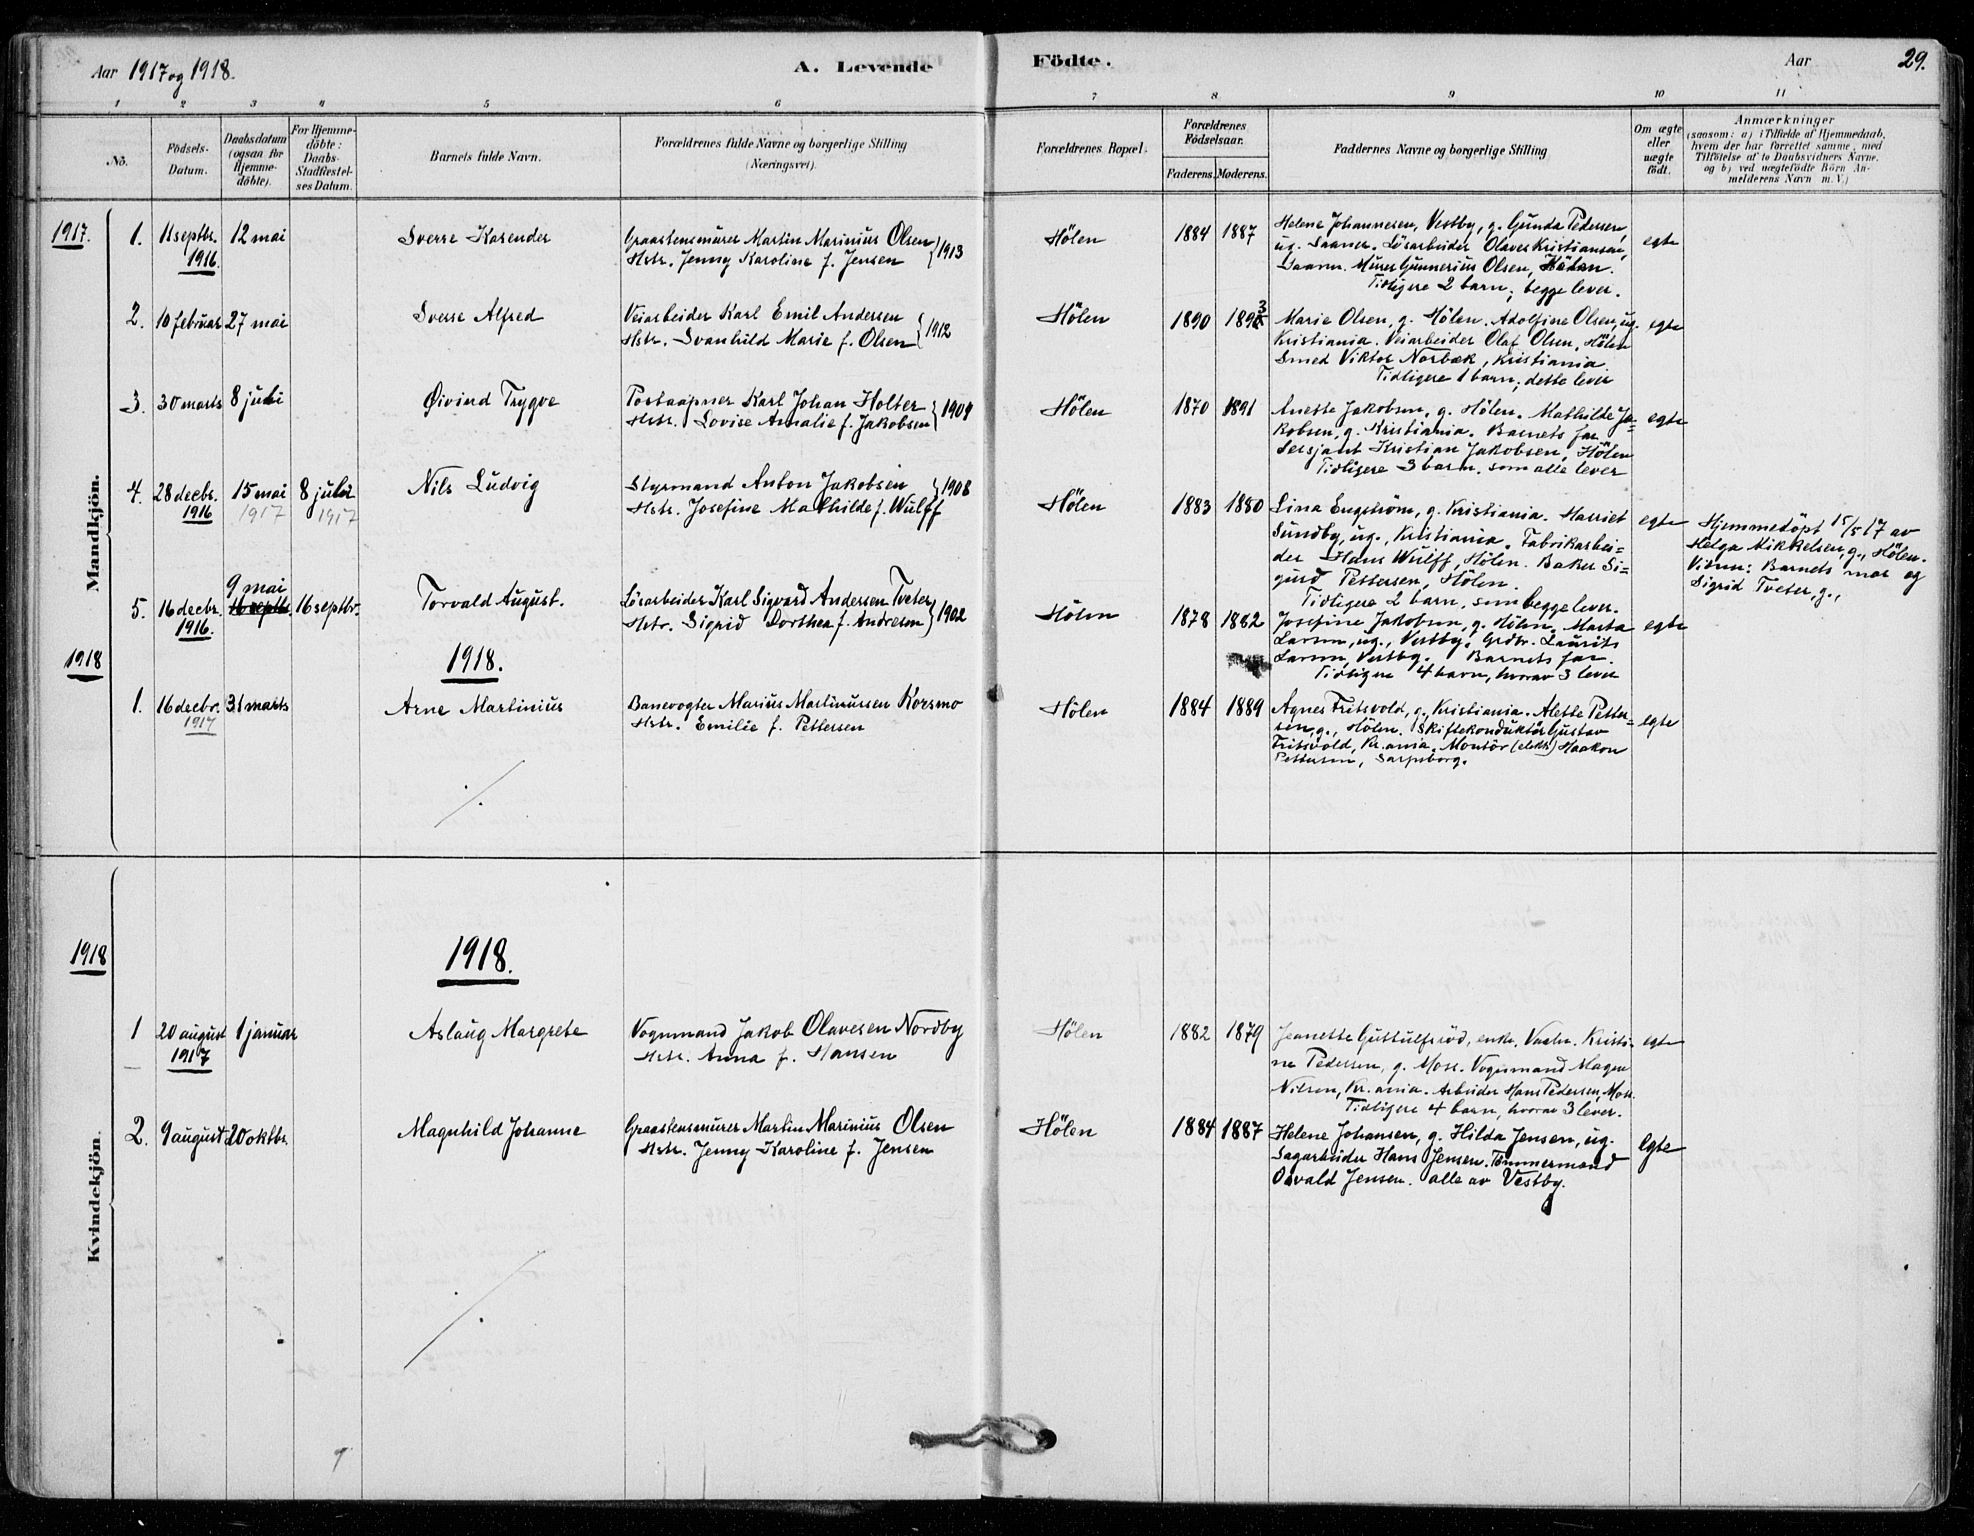 Aar 1917 og 1918.
A. Levende Födte.
Aar
29.
1 2 3 4 5 6 7 8 9 10 11
No.
Födsels-Datum.
Daabsdatum (ogsaa for Hjemme-döbte).
For Hjemme-döbte: Daabs-Stadfæstel-ses Datum.
Barnets fulde Navn.
Forældrenes fulde Navne og borgerlige Stilling (Næringsvei).
Forældrenes Bopæl.
Forældrenes Födselsaar.
Faderens. Moderens.
Faddernes Navne og borgerlige Stilling
Om ægte eller uægte födt.
Anmærkninger
(saasom: a) i Tilfælde af Hjemmedaab,
hvem der har forrettet samme, med
Tilföielse af to Daabsvidners Navne,
og b) ved uægtefödte Börn An-
melderens Navn m. V.)
Mandkjön.
1917.
1. 11 septbr. 1916. 12 mai
Sverre Karender
Graastensmurer Martin Marinius Olsen
Hstr. Jenny Karoline f. Jensen } 1913
Hölen
1884 1887
Helene Johannesen, Vestby, g. Gunda Pedersen,
ug. Saaner. Lösarbeider Olaves Kristiansen,
Saann. Murer Gunnerius Olsen, Hölen.
Tidligere 2 barn; begge lever.
egte
2. 10 februar 27 mai
Sverre Alfred
Veiarbeider Karl Emil Andersen
Hstr. Svanhild Marie f. Olsen } 1912
Hölen
1890 1893
Marie Olsen, g. Hölen. Adolfine Olsen, ug.
Kristiania. Veiarbeider Olaf Olsen, Hölen
Smed Viktor Norbæk, Kristiania.
Tidligere 1 barn; dette lever
egte
3. 30 marts 8 juli
Øivind Trygve
Postaapner Karl Johan Holter
Hstr. Lovise Amalie f. Jakobsen } 1909
Hölen
1870 1891
Anette Jakobsen, g. Hölen. Mathilde Ja-
kobsen, g. Kristiania. Barnets far
Sersjant Kristian Jakobsen, Hölen
Tidligere 3 barn, som alle lever
egte
4. 28 decbr. 1916 15 mai 1917 8 juli 1917
Nils Ludvig
Styrmand Anton Jakobsen
Hstr. Josefine Mathilde f. Wulff } 1908
Hölen
1883 1880
Lina Engström, g. Kristiania. Harriet
Sundby, ug., Kristiania. Fabrikarbei=
der Hans Wulff, Hölen. Baker Si=
gurd Pettersen, Hölen.
Tidligere 2 barn, som begge lever.
egte
Hjemmedöpt 15/5 17 av
Helga Mikkelsen, g., Hölen.
Vidner: Barnets mor og
Sigrid Tveter, g.,
5. 16 decbr. 1916. 9 mai 16 septbr. 16 septbr.
Torvald August.
Lösarbeider Karl Sigvard Andersen Tveter
Hstr. Sigrid Dorthea f. Andresen } 1902
Hölen
1878 1882
Josefine Jakobsen, g. Hölen. Marta
Larsen, ug., Vestby. Grdbr. Laurits
Larsen, Vestby. Barnets far.
Tidligere 4 barn, hvorav 3 lever
egte
1918
1918.
1. 16 decbr. 1917 31 marts
Arne Martinius
Banevogter Marius Martinussen Korsmo
Hstr. Emilie f. Pettersen
Hölen
1884 1889
Agnes Fritsvold, g. Kristiania. Alette Petter=
sen, g., Hölen. Skiftekonduktör Gustav
Fritsvold, Kr.ania. Montör (elektr.) Haakon
Pettersen, Sarpsborg.
egte
Kvindekjön.
1918
1918.
1 20 august 1917 1 januar
Aslaug Margrete
Vognmand Jakob Olavesen Nordby
Hstr. Anna f. Hansen
Hölen
1882 1879
Jeanette Guttulfsröd, enke. Vaaler. Kristi-
ne Pedersen, g. Moss. Vognmand Magnus
Nilsen, Kr.ania. Arbeider Hans Pedersen, Moss.
Tidligere 4 barn, hvorav 3 lever.
egte
2. 9 august. 20 oktbr.
Magnhild Johanne
Graastensmurer Martin Marinius Olsen
Hstr. Jenny Karoline f. Jensen
Hölen
1884 1887
Helene Johansen, g. Hilda Jensen, ug.
Sagarbeider Hans Jensen. Tömmermand
Osvald Jensen. alle av Vestby.
Egte